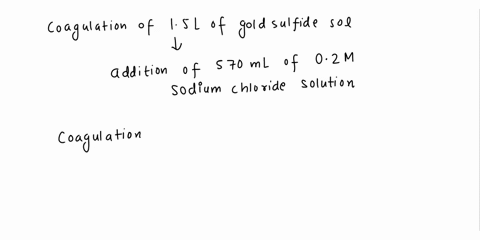 Coagulation of 1.5L of gold sulfide sol
↓
addition of 570 mL of 0.2M
sodium chloride solution
Coagulation